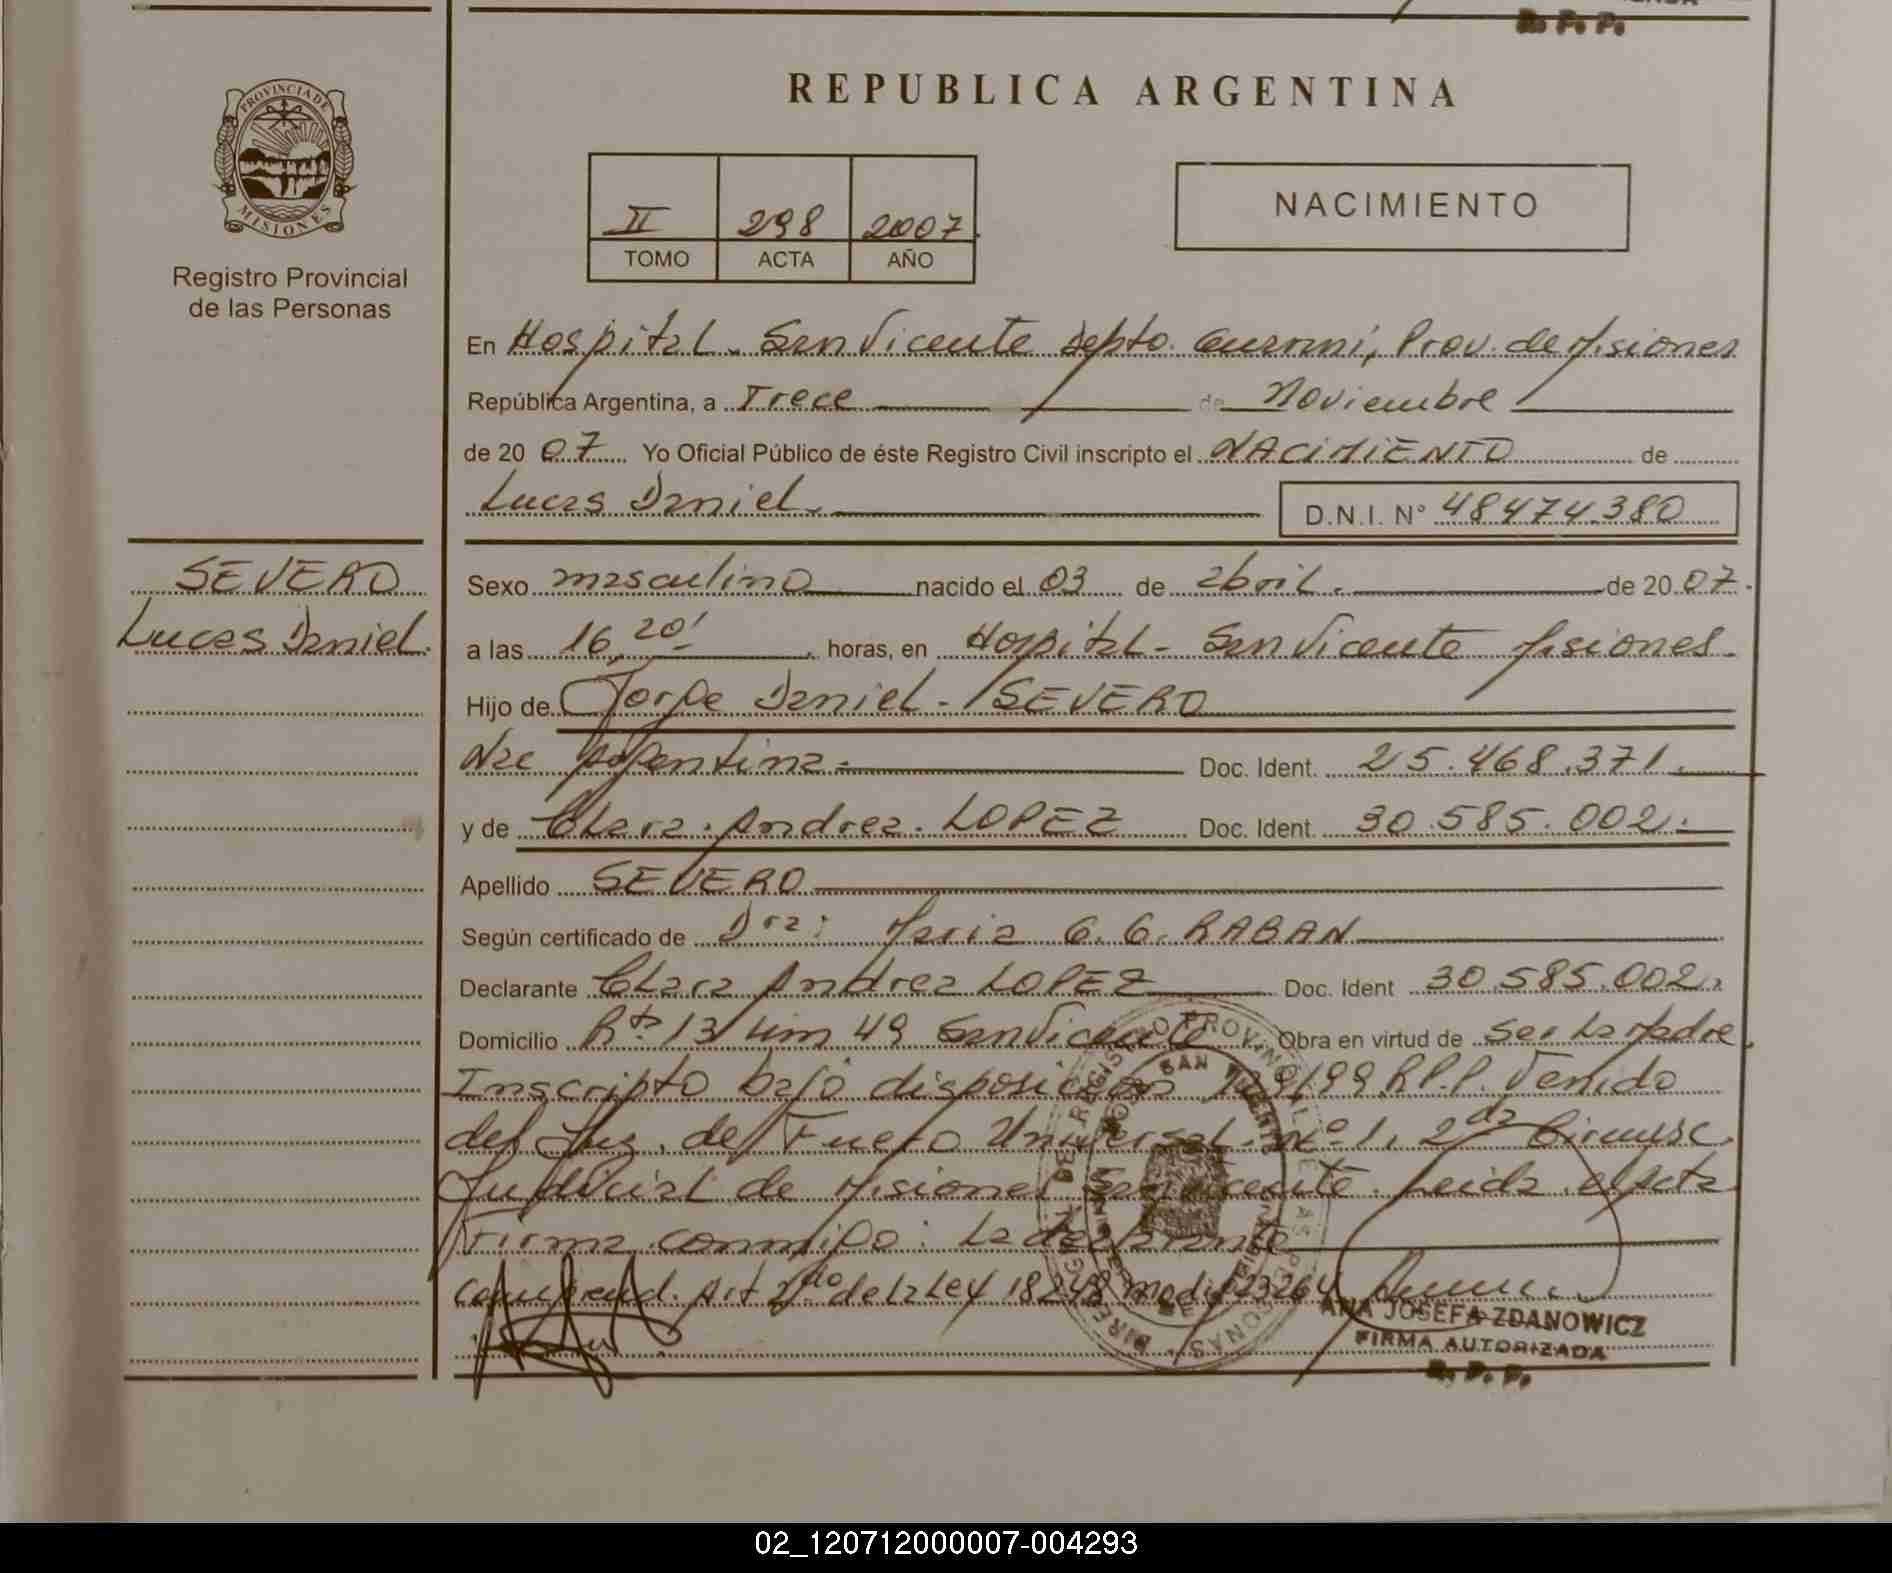 R. P. P.
PROVINCIA DE
MISIONES
Registro Provincial
de las Personas
REPUBLICA ARGENTINA
II 298 2007
TOMO ACTA AÑO
NACIMIENTO
En Hospital - San Vicente Depto. Guarani, Prov. de Misiones
República Argentina, a Trece de Noviembre
de 20 07 Yo Oficial Público de éste Registro Civil inscripto el NACIMIENTO de
Lucas Daniel.
D.N.I. N° 48474.380
SEVERO
Lucas Daniel.
Sexo masculino nacido el 03 de abril. de 20 07.
a las 16,20' horas, en Hospital - San Vicente Misiones.
Hijo de Jorge Daniel - SEVERO
Nac Argentina - Doc. Ident. 25.468.371.
y de Clara Andrea LOPEZ Doc. Ident. 30.585.002.
Apellido SEVERO
Según certificado de Dra: Maria G. G. RABAN
Declarante Clara Andrea LOPEZ Doc. Ident 30.585.002.
Domicilio Rta. 13 km 49 San Vicente Obra en virtud de Ser La Madre
Inscripto bajo disposicion R.P.P. Venido
del Juz. de Fuero Universal N° 1, 2da Circunsc.
Judicial de Misiones San Vicente. Leida el acta
Firma conmigo: La declarante
Comprend. Art 2do de la Ley 18248 modif 23264
ANA JOSEFA ZDANOWICZ
FIRMA AUTORIZADA
R. P. P.
02_120712000007-004293